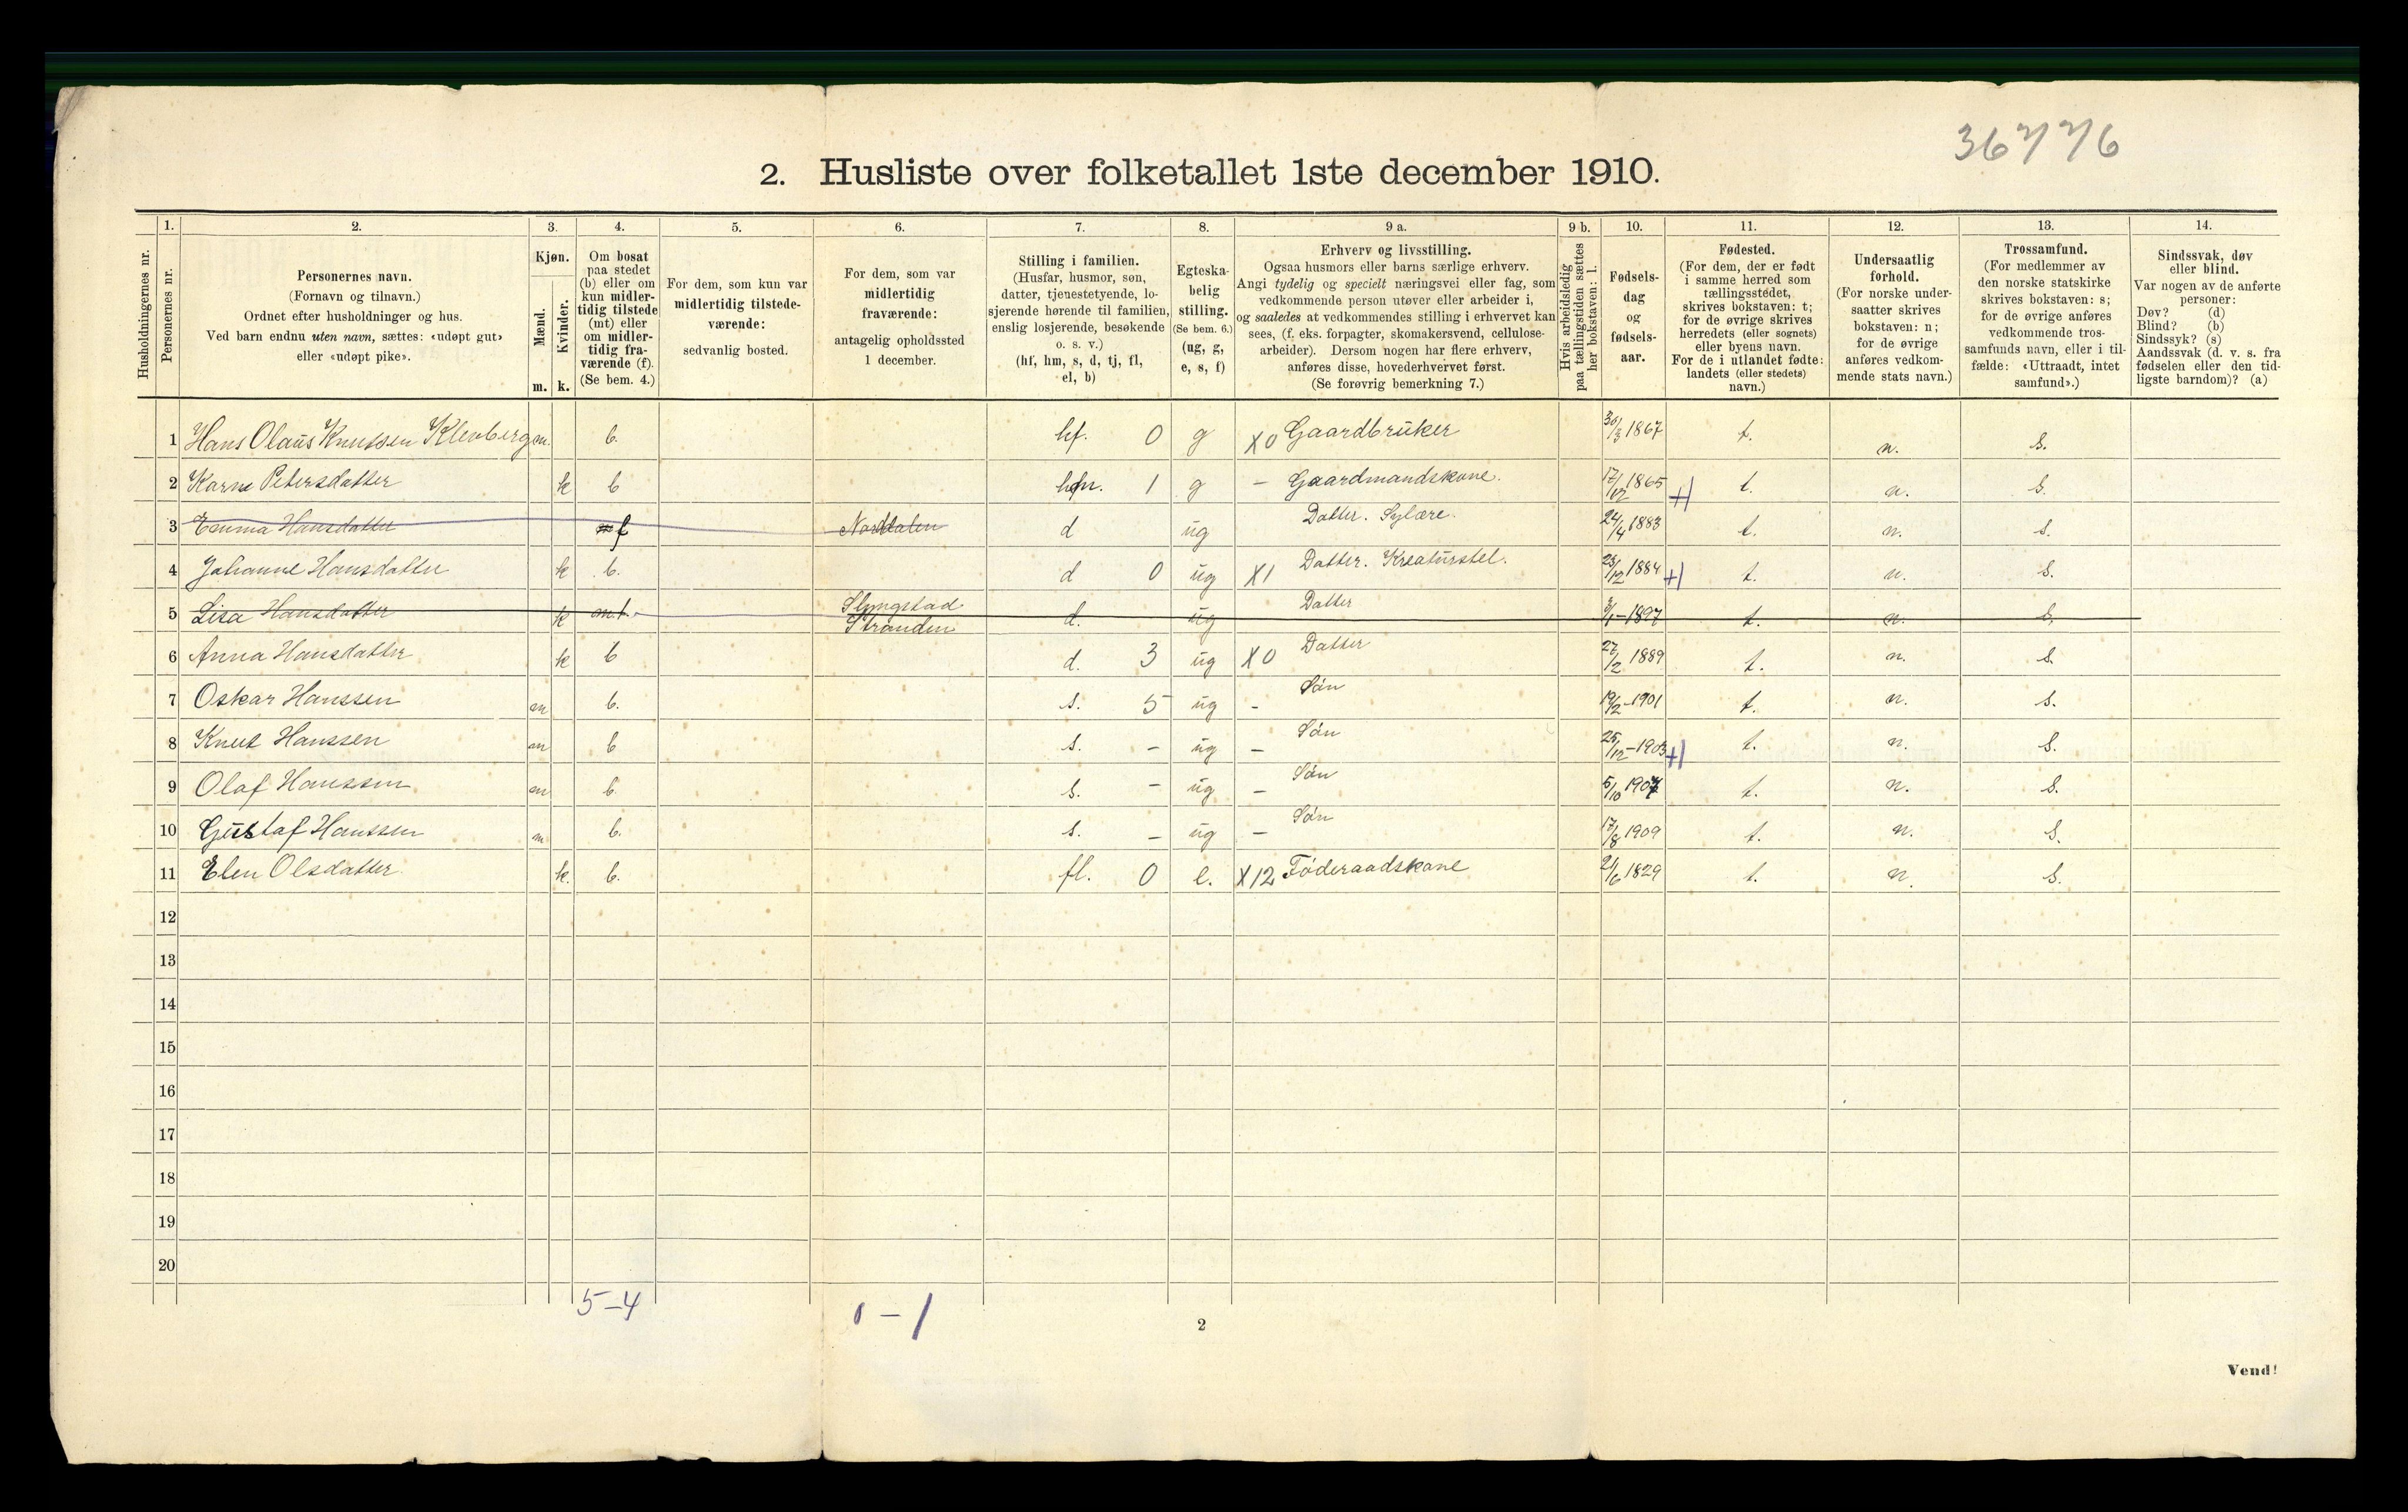 36776
2. Husliste over folketallet 1ste december 1910.
Husholdningernes nr.
1.
Personernes nr.
2.
Personernes navn.
(Fornavn og tilnavn.)
Ordnet efter husholdninger og hus.
Ved barn endnu uten navn, sættes: «udøpt gut»
eller «udøpt pike».
3.
Kjøn.
Mænd.
m.
Kvinder.
k.
4.
Om bosat
paa stedet
(b) eller om
kun midler-
tidig tilstede
(mt) eller
om midler-
tidig fra-
værende (f).
(Se bem. 4.)
5.
For dem, som kun var
midlertidig tilstede-
værende:
sedvanlig bosted.
6.
For dem, som var
midlertidig
fraværende:
antagelig opholdssted
1 december.
7.
Stilling i familien.
(Husfar, husmor, søn,
datter, tjenestetyende, lo-
sjerende hørende til familien,
enslig losjerende, besøkende
o. s. v.)
(hf, hm, s, d, tj, fl,
el, b)
8.
Egteska-
belig
stilling.
(Se bem. 6.)
(ug, g,
e, s, f)
9 a.
Erhverv og livsstilling.
Ogsaa husmors eller barns særlige erhverv.
Angi tydelig og specielt næringsvei eller fag, som
vedkommende person utøver eller arbeider i,
og saaledes at vedkommendes stilling i erhvervet kan
sees, (f. eks. forpagter, skomakersvend, cellulose-
arbeider). Dersom nogen har flere erhverv,
anføres disse, hovederhvervet først.
(Se forøvrig bemerkning 7.)
9 b.
Hvis arbeidsledig
paa tællingstiden sættes
her bokstaven: l.
10.
Fødsels-
dag
og
fødsels-
aar.
11.
Fødested.
(For dem, der er født
i samme herred som
tællingsstedet,
skrives bokstaven: t;
for de øvrige skrives
herredets (eller sognets)
eller byens navn.
For de i utlandet fødte:
landets (eller stedets)
navn.)
12.
Undersaatlig
forhold.
(For norske under-
saatter skrives
bokstaven: n;
for de øvrige
anføres vedkom-
mende stats navn.)
13.
Trossamfund.
(For medlemmer av
den norske statskirke
skrives bokstaven: s;
for de øvrige anføres
vedkommende tros-
samfunds navn, eller i til-
fælde: «Uttraadt, intet
samfund».)
14.
Sindssvak, døv
eller blind.
Var nogen av de anførte
personer:
Døv? (d)
Blind? (b)
Sindssyk? (s)
Aandssvak (d. v. s. fra
fødselen eller den tid-
ligste barndom)? (a)
1 Hans Olaus Knutsen Klevberg m. b. hf. 0 g X0 Gaardbruker 30/3 1867 t. n. s.
2 Karne Petersdatter k b hm. 1 g - Gaardmandskone. 17/12 1865 +1 t. n. s.
3 Emma Hansdatter f Norddalen d ug Datter. Sylære. 24/4 1883 t. n. s.
4 Johanne Hansdatter k b. d 0 ug X1 Datter. Kreaturstel. 23/12 1884 +1 t. n. s.
5 Lisa Hansdatter k m.t. Slyngstad Stranden d. ug Datter 3/1-1897 t. n. s.
6 Anna Hansdatter k b d. 3 ug X0 Datter 27/2 1889 t. n. s.
7 Oskar Hanssen m b. s. 5 ug - Søn 19/2-1901 t. n. s.
8 Knut Hanssen m b s. - ug - Søn 25/12-1903 +1 t. n. s.
9 Olaf Hanssen m b. s. - ug - Søn 5/10 1907 t. n. s.
10 Gustaf Hanssen m b. s. - ug - Søn 17/8 1909 t. n. s.
11 Elen Olsdatter k. b. fl. 0 e. X12 Føderaadskone 21/6 1829 t. n. s.
12
13
14
15
16
17
18
19
20
5-4
1-1
2
Vend!